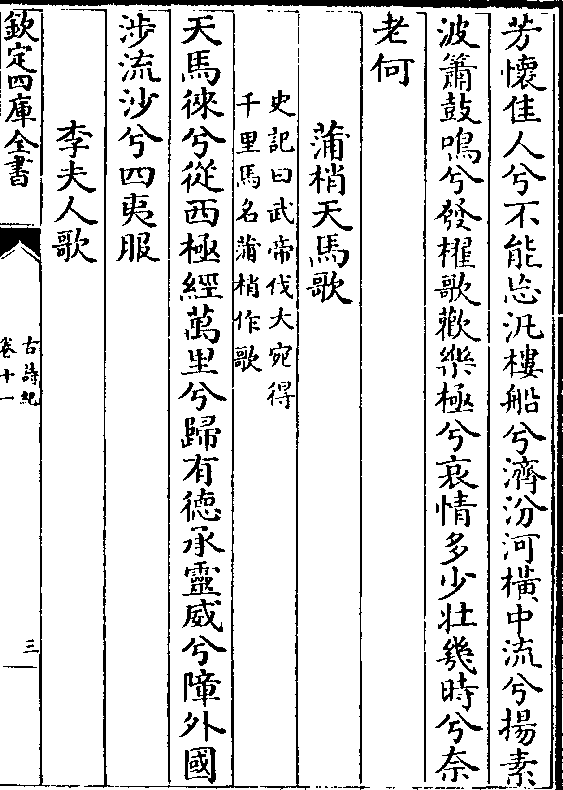 芳懷佳人兮不能忘汎樓船兮濟汾河橫中流兮揚素
波簫鼓鳴兮發櫂歌歡樂極兮哀情多少壯幾時兮奈
老何
蒲梢天馬歌
史記曰武帝伐大宛得
千里馬名蒲梢作歌
天馬徠兮從西極經萬里兮歸有德承靈威兮障外國
涉流沙兮四夷服
李夫人歌
欽定四庫全書
古詩紀
卷十一
三